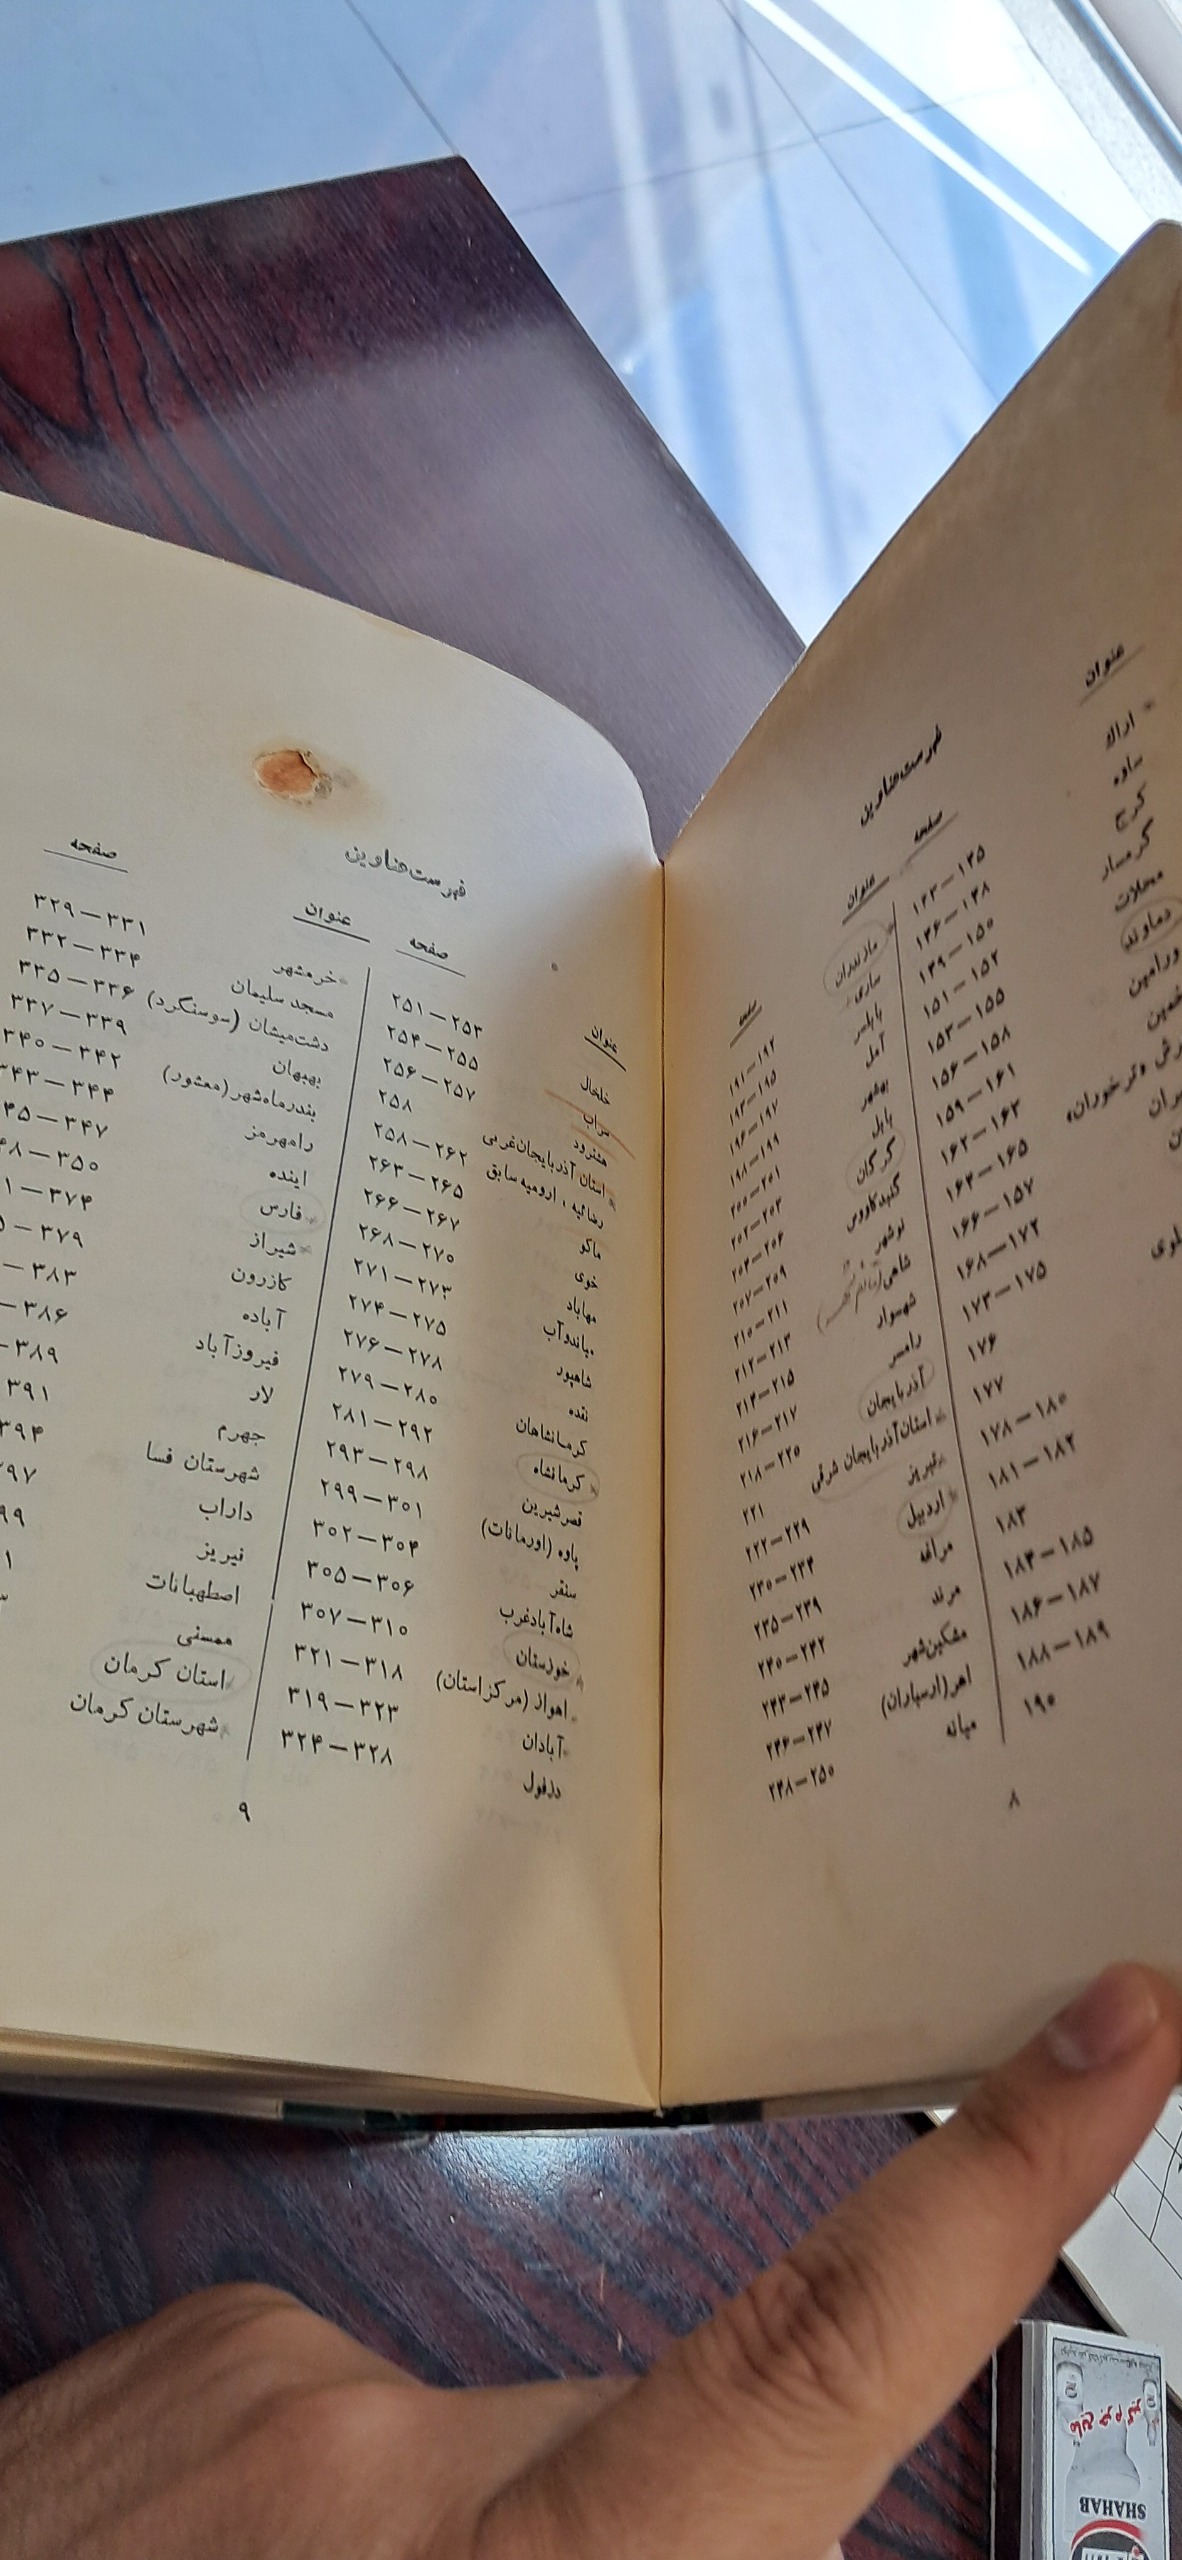 فهرست عناوین
عنوان
اراك
ساوه
کرج
گرمسار
محلات
دماوند
ورامین
خمین
صفحه
۱۴۳-۱۴۵
۱۴۶-۱۴۸
۱۴۹-۱۵۰
۱۵۱-۱۵۲
۱۵۳-۱۵۵
۱۵۶-۱۵۸
۱۵۹-۱۶۱
۱۶۲-۱۶۳
۱۶۴-۱۶۵
۱۶۶-۱۵۷
۱۶۸-۱۷۲
۱۷۳-۱۷۵
۱۷۶
۱۷۷
۱۷۸-۱۸۰
۱۸۱-۱۸۲
۱۸۳
۱۸۴-۱۸۵
۱۸۶-۱۸۷
۱۸۸-۱۸۹
۱۹۰
عنوان
مازندران
ساری
بابلسر
آمل
بهشهر
بابل
گرگان
گنبدکاووس
نوشهر
شاهی
شهسوار
رامسر
آذربایجان
استان آذربایجان شرقی
تبریز
اردبیل
مراغه
مرند
مشکین‌شهر
اهر (ارسباران)
میانه
صفحه
۱۹۱-۱۹۲
۱۹۳-۱۹۵
۱۹۶-۱۹۷
۱۹۸-۱۹۹
۲۰۰-۲۰۱
۲۰۲-۲۰۳
۲۰۴-۲۰۶
۲۰۷-۲۰۹
۲۱۰-۲۱۱
۲۱۲-۲۱۳
۲۱۴-۲۱۵
۲۱۶-۲۱۷
۲۱۸-۲۲۰
۲۲۱
۲۲۲-۲۲۹
۲۳۰-۲۳۴
۲۳۵-۲۳۹
۲۴۰-۲۴۲
۲۴۳-۲۴۵
۲۴۶-۲۴۷
۲۴۸-۲۵۰
۸
فهرست عناوین
عنوان
خلخال
سراب
هشترود
استان آذربایجان غربی
رضائیه ، ارومیه سابق
ماکو
خوی
مهاباد
میاندوآب
شاهپور
نقده
کرمانشاهان
کرمانشاه
قصرشیرین
پاوه (اورمانات)
سنقر
شاه‌آبادغرب
خوزستان
اهواز (مرکز استان)
آبادان
دزفول
صفحه
۲۵۱-۲۵۳
۲۵۴-۲۵۵
۲۵۶-۲۵۷
۲۵۸
۲۵۸-۲۶۲
۲۶۳-۲۶۵
۲۶۶-۲۶۷
۲۶۸-۲۷۰
۲۷۱-۲۷۳
۲۷۴-۲۷۵
۲۷۶-۲۷۸
۲۷۹-۲۸۰
۲۸۱-۲۹۲
۲۹۳-۲۹۸
۲۹۹-۳۰۱
۳۰۲-۳۰۴
۳۰۵-۳۰۶
۳۰۷-۳۱۰
۳۲۱-۳۱۸
۳۱۹-۳۲۳
۳۲۴-۳۲۸
عنوان
خرمشهر
مسجد سلیمان
دشت‌میشان (سوسنگرد)
بهبهان
بندرماه‌شهر (معشور)
رامهرمز
ایذه
فارس
شیراز
کازرون
آباده
فیروزآباد
لار
جهرم
شهرستان فسا
داراب
نیریز
اصطهبانات
ممسنی
استان کرمان
شهرستان کرمان
صفحه
۳۲۹-۳۳۱
۳۳۲-۳۳۴
۳۳۵-۳۳۶
۳۳۷-۳۳۹
۳۴۰-۳۴۲
۳۴۳-۳۴۴
۴۵-۳۴۷
۴۸-۳۵۰
۱-۳۷۴
۵-۳۷۹
-۳۸۳
-۳۸۶
-۳۸۹
۳۹۱
۳۹۴
۹۷
۹۹
۱
۳
۹
SHAHAB